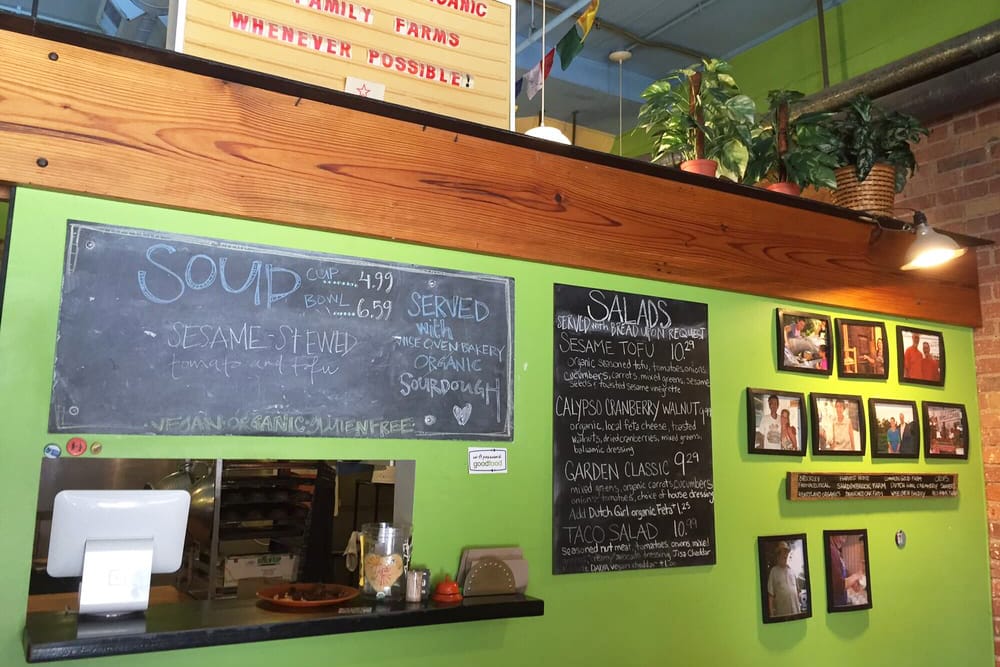 ORGANIC
FAMILY FARMS
WHENEVER POSSIBLE!
SOUP
CUP 4.99
BOWL 6.59
SERVED
with
OVEN BAKERY
ORGANIC
SOURDOUGH
SESAME-STEWED
tomato and tofu
VEGAN·ORGANIC·GLUTEN FREE
goodfood
SALADS
SERVED with BREAD UPON REQUEST
SESAME TOFU 10.29
organic seasoned tofu, tomatoes, onions,
cucumbers, carrots, mixed greens, sesame
seeds & toasted sesame vinegrette
CALYPSO CRANBERRY WALNUT 9.99
organic, local feta cheese, toasted
walnuts, dried cranberries, mixed greens,
balsamic dressing
GARDEN CLASSIC 9.29
mixed greens, organic carrots, cucumbers
onions, tomatoes, choice of house dressing
Add Dutch Girl organic Feta $1.25
TACO SALAD 10.99
seasoned nut meat, tomatoes, onions, maize!
avocado dressing, Tisa Cheddar
vegan cheddar